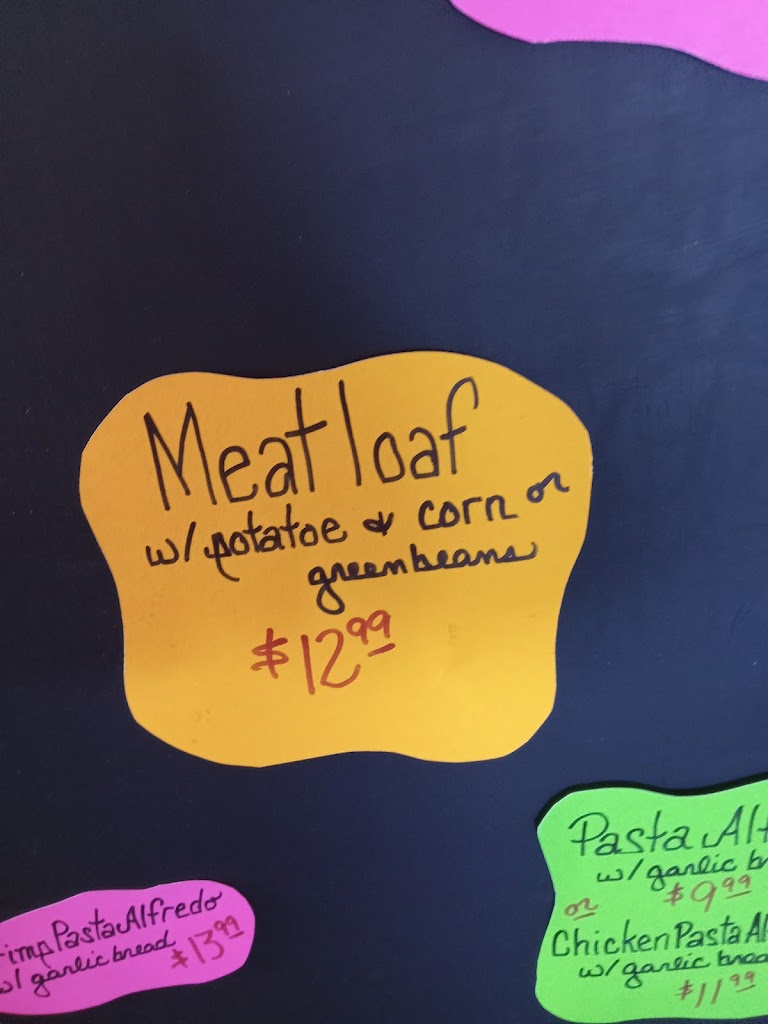 Meat loaf
w/ potatoe & corn or
greenbeans
$12.99
Pasta
w/ garlic
$9.99
or
Chicken Pasta
w/ garlic
$11.99
Pasta Alfredo
w/ garlic bread
$13.99